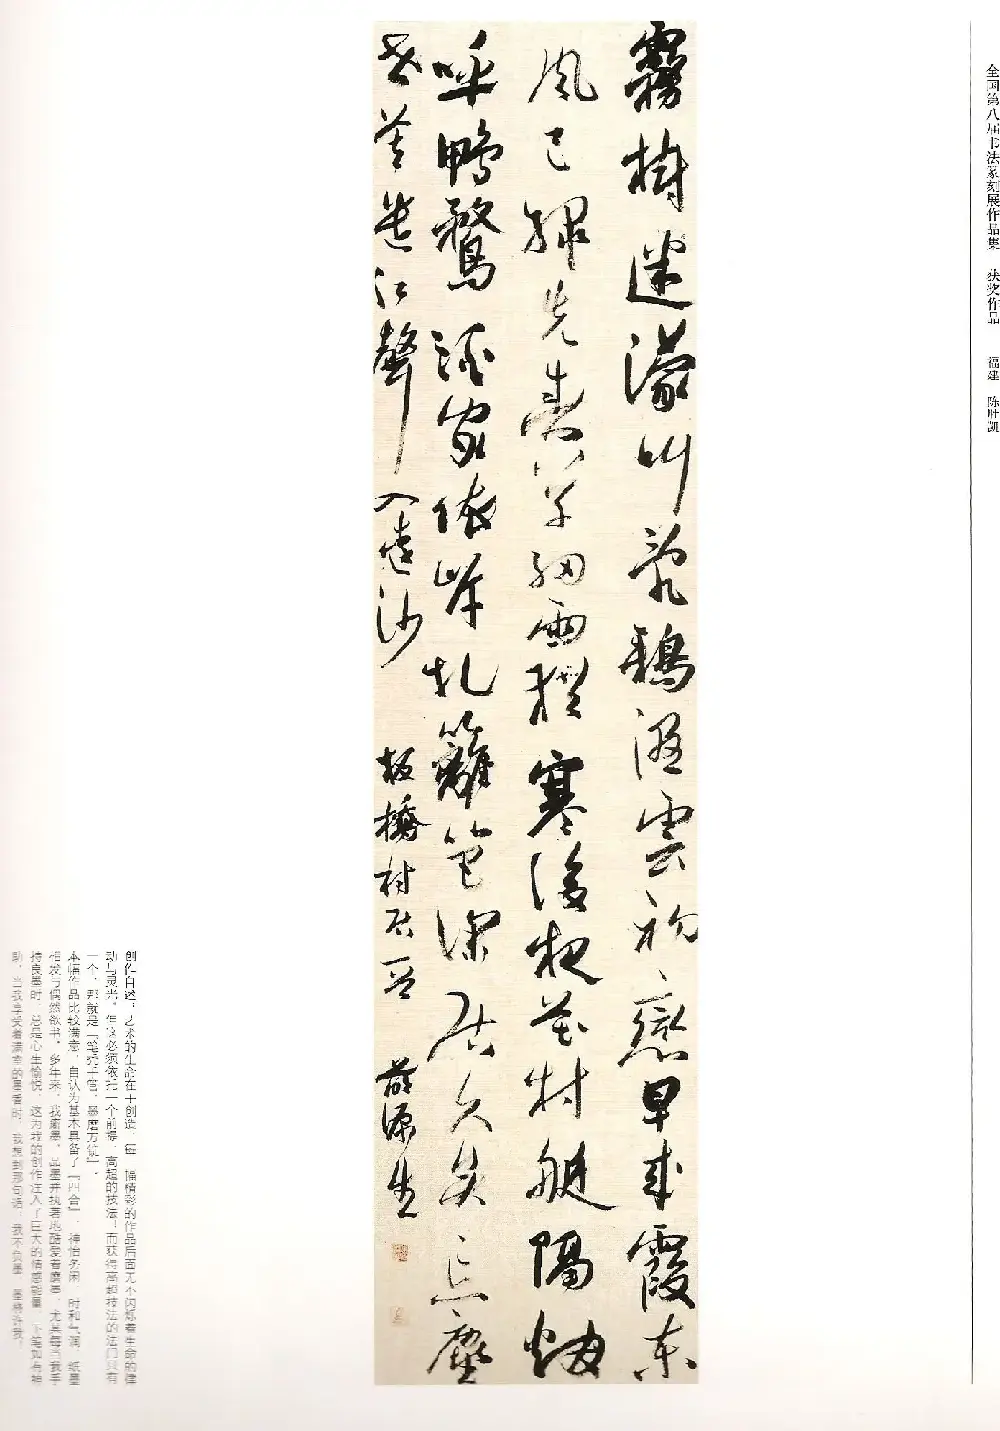 全国第八届书法篆刻展作品集 获奖作品 福建
霧樹迷濛叫亂鴉濕雲初變早来霞东
風已綠先春草細雨猶寒後夜花村艇隔烟
呼鴨鶩酒家依岸扎籬笆深居久矣忘塵
世莫遣江聲入遠沙 板橋村居一首
创作自述:艺术的生命在于创造,每一幅精彩的作品后面无不闪烁着生命的律
动与灵光。但这必须依托一个前提:高超的技法!而获得高超技法的法门只有
一个,那就是『笔秃千管,墨磨万锭』。
本幅作品比较满意,自认为基本具备了『四合』:神怡务闲、时和气润、纸墨
相发与偶然欲书。多年来,我藏墨、品墨并执著地酷爱着磨墨,尤其每当我手
持良墨时,总是心生愉悦,这为我的创作注入了巨大的情感能量,下笔如有神
助。当我享受着满室的墨香时,我想到那句话:我不负墨,墨将许我!